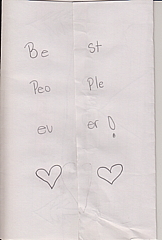 Be st
Peo ple
ev er!